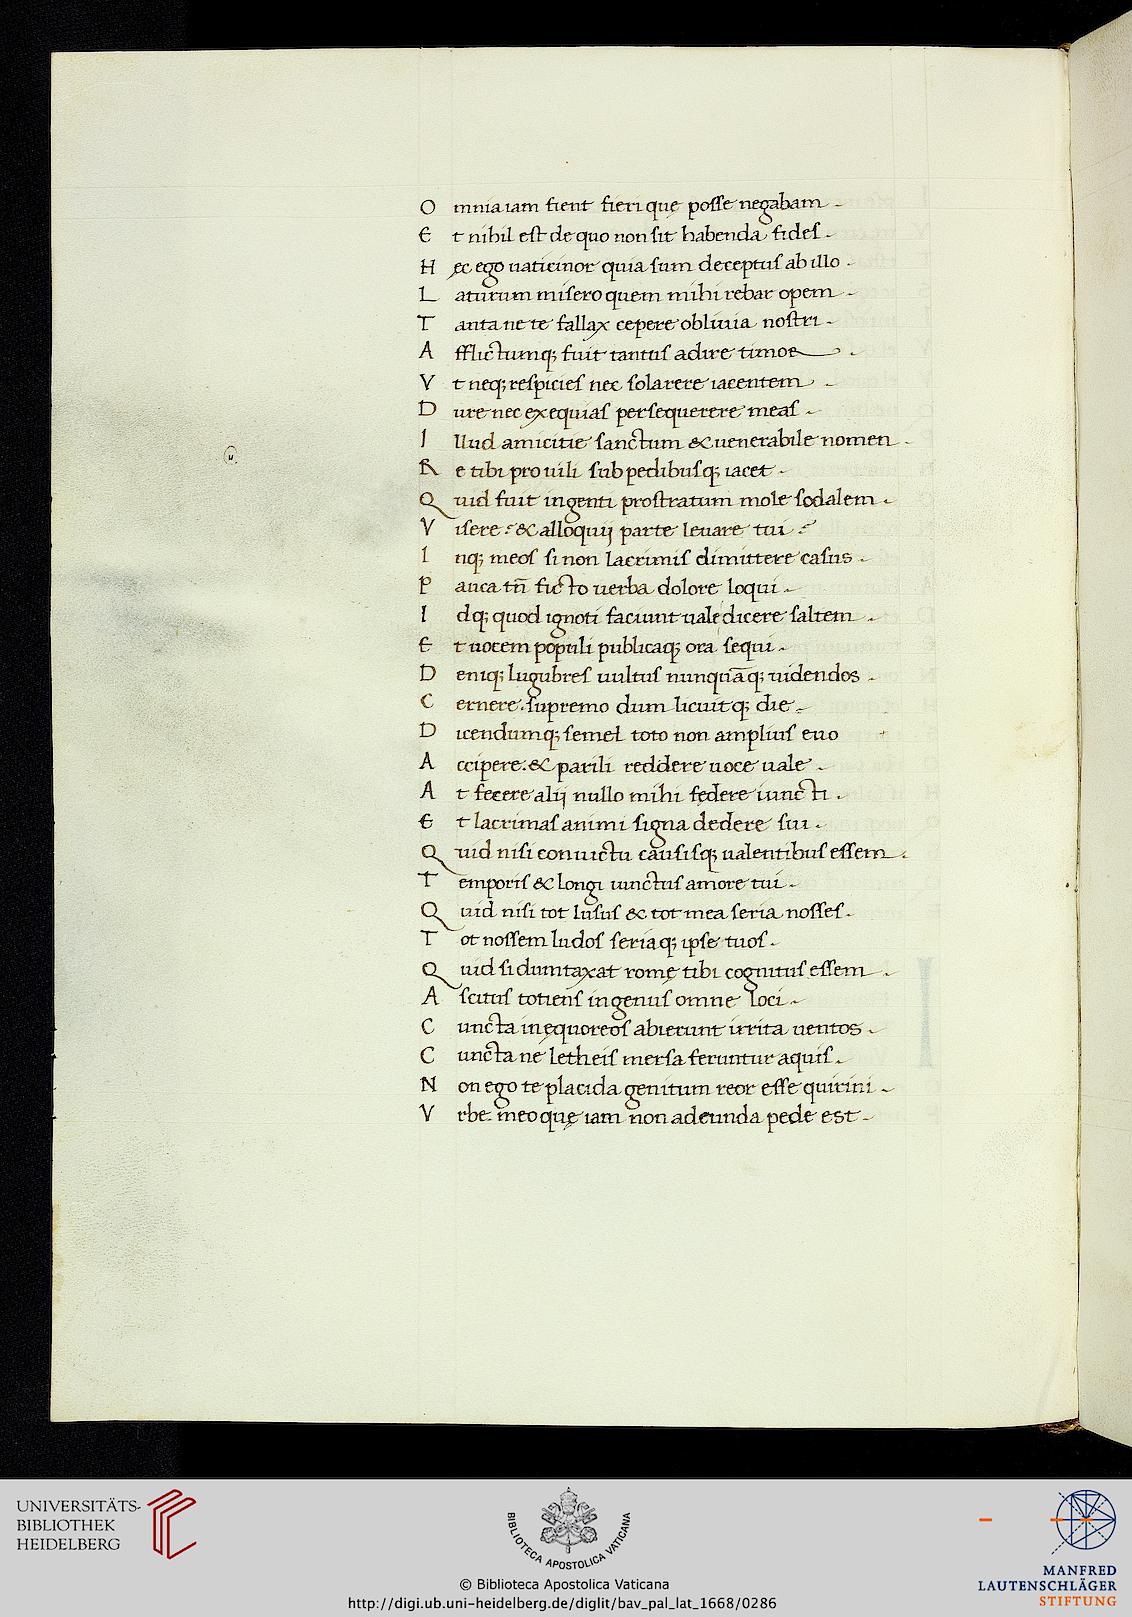 Omnia iam fient fieri quę posse negabam .
Et nihil est de quo non sit habenda fides .
Hęc ego uaticinor quia sum deceptus ab illo .
Laturum misero quem mihi rebar opem .
Tanta ne te fallax cepere obliuia nostri .
Afflictumq; fuit tantus adire timor .
Vt neq; respicies nec solarere iacentem .
Dure nec exequias persequerere meas .
Illud amicitie sanctum & uenerabile nomen .
Re tibi pro uili sub pedibusq; iacet .
Quid fuit ingenti prostratum mole sodalem .
Visere : & alloquij parte leuare tui :
Inq; meos si non lacrimis dimittere casus .
Pauca tn̄ ficto uerba dolore loqui .
Idq; quod ignoti faciunt uale dicere saltem .
Et uocem populi publicaq; ora sequi .
Deniq; lugubres uultus nunquāq; uidendos .
Cernere . supremo dum licuitq; die .
Dicendumq; semel toto non amplius euo
Accipere : & parili reddere uoce uale .
At fecere alij nullo mihi fędere iuncti .
Et lacrimas animi signa dedere sui .
Quid nisi conuictu causisq; ualentibus essem .
Temporis & longi iunctus amore tui .
Quid nisi tot lusus & tot mea seria nosses .
Tot nossem ludos seriaq; ipse tuos .
Quid si dumtaxat romę tibi cognitus essem .
Ascitus totiens ingenus omne loci .
Cuncta in ęquoreos abierunt irrita uentos .
Cuncta ne letheis mersa feruntur aquis .
Non ego te placida genitum reor esse quirini .
Vrbe . meo quę iam non adeunda pede est .
UNIVERSITÄTS-
BIBLIOTHEK
HEIDELBERG
BIBLIOTECA APOSTOLICA VATICANA
© Biblioteca Apostolica Vaticana
http://digi.ub.uni-heidelberg.de/diglit/bav_pal_lat_1668/0286
MANFRED
LAUTENSCHLÄGER
STIFTUNG